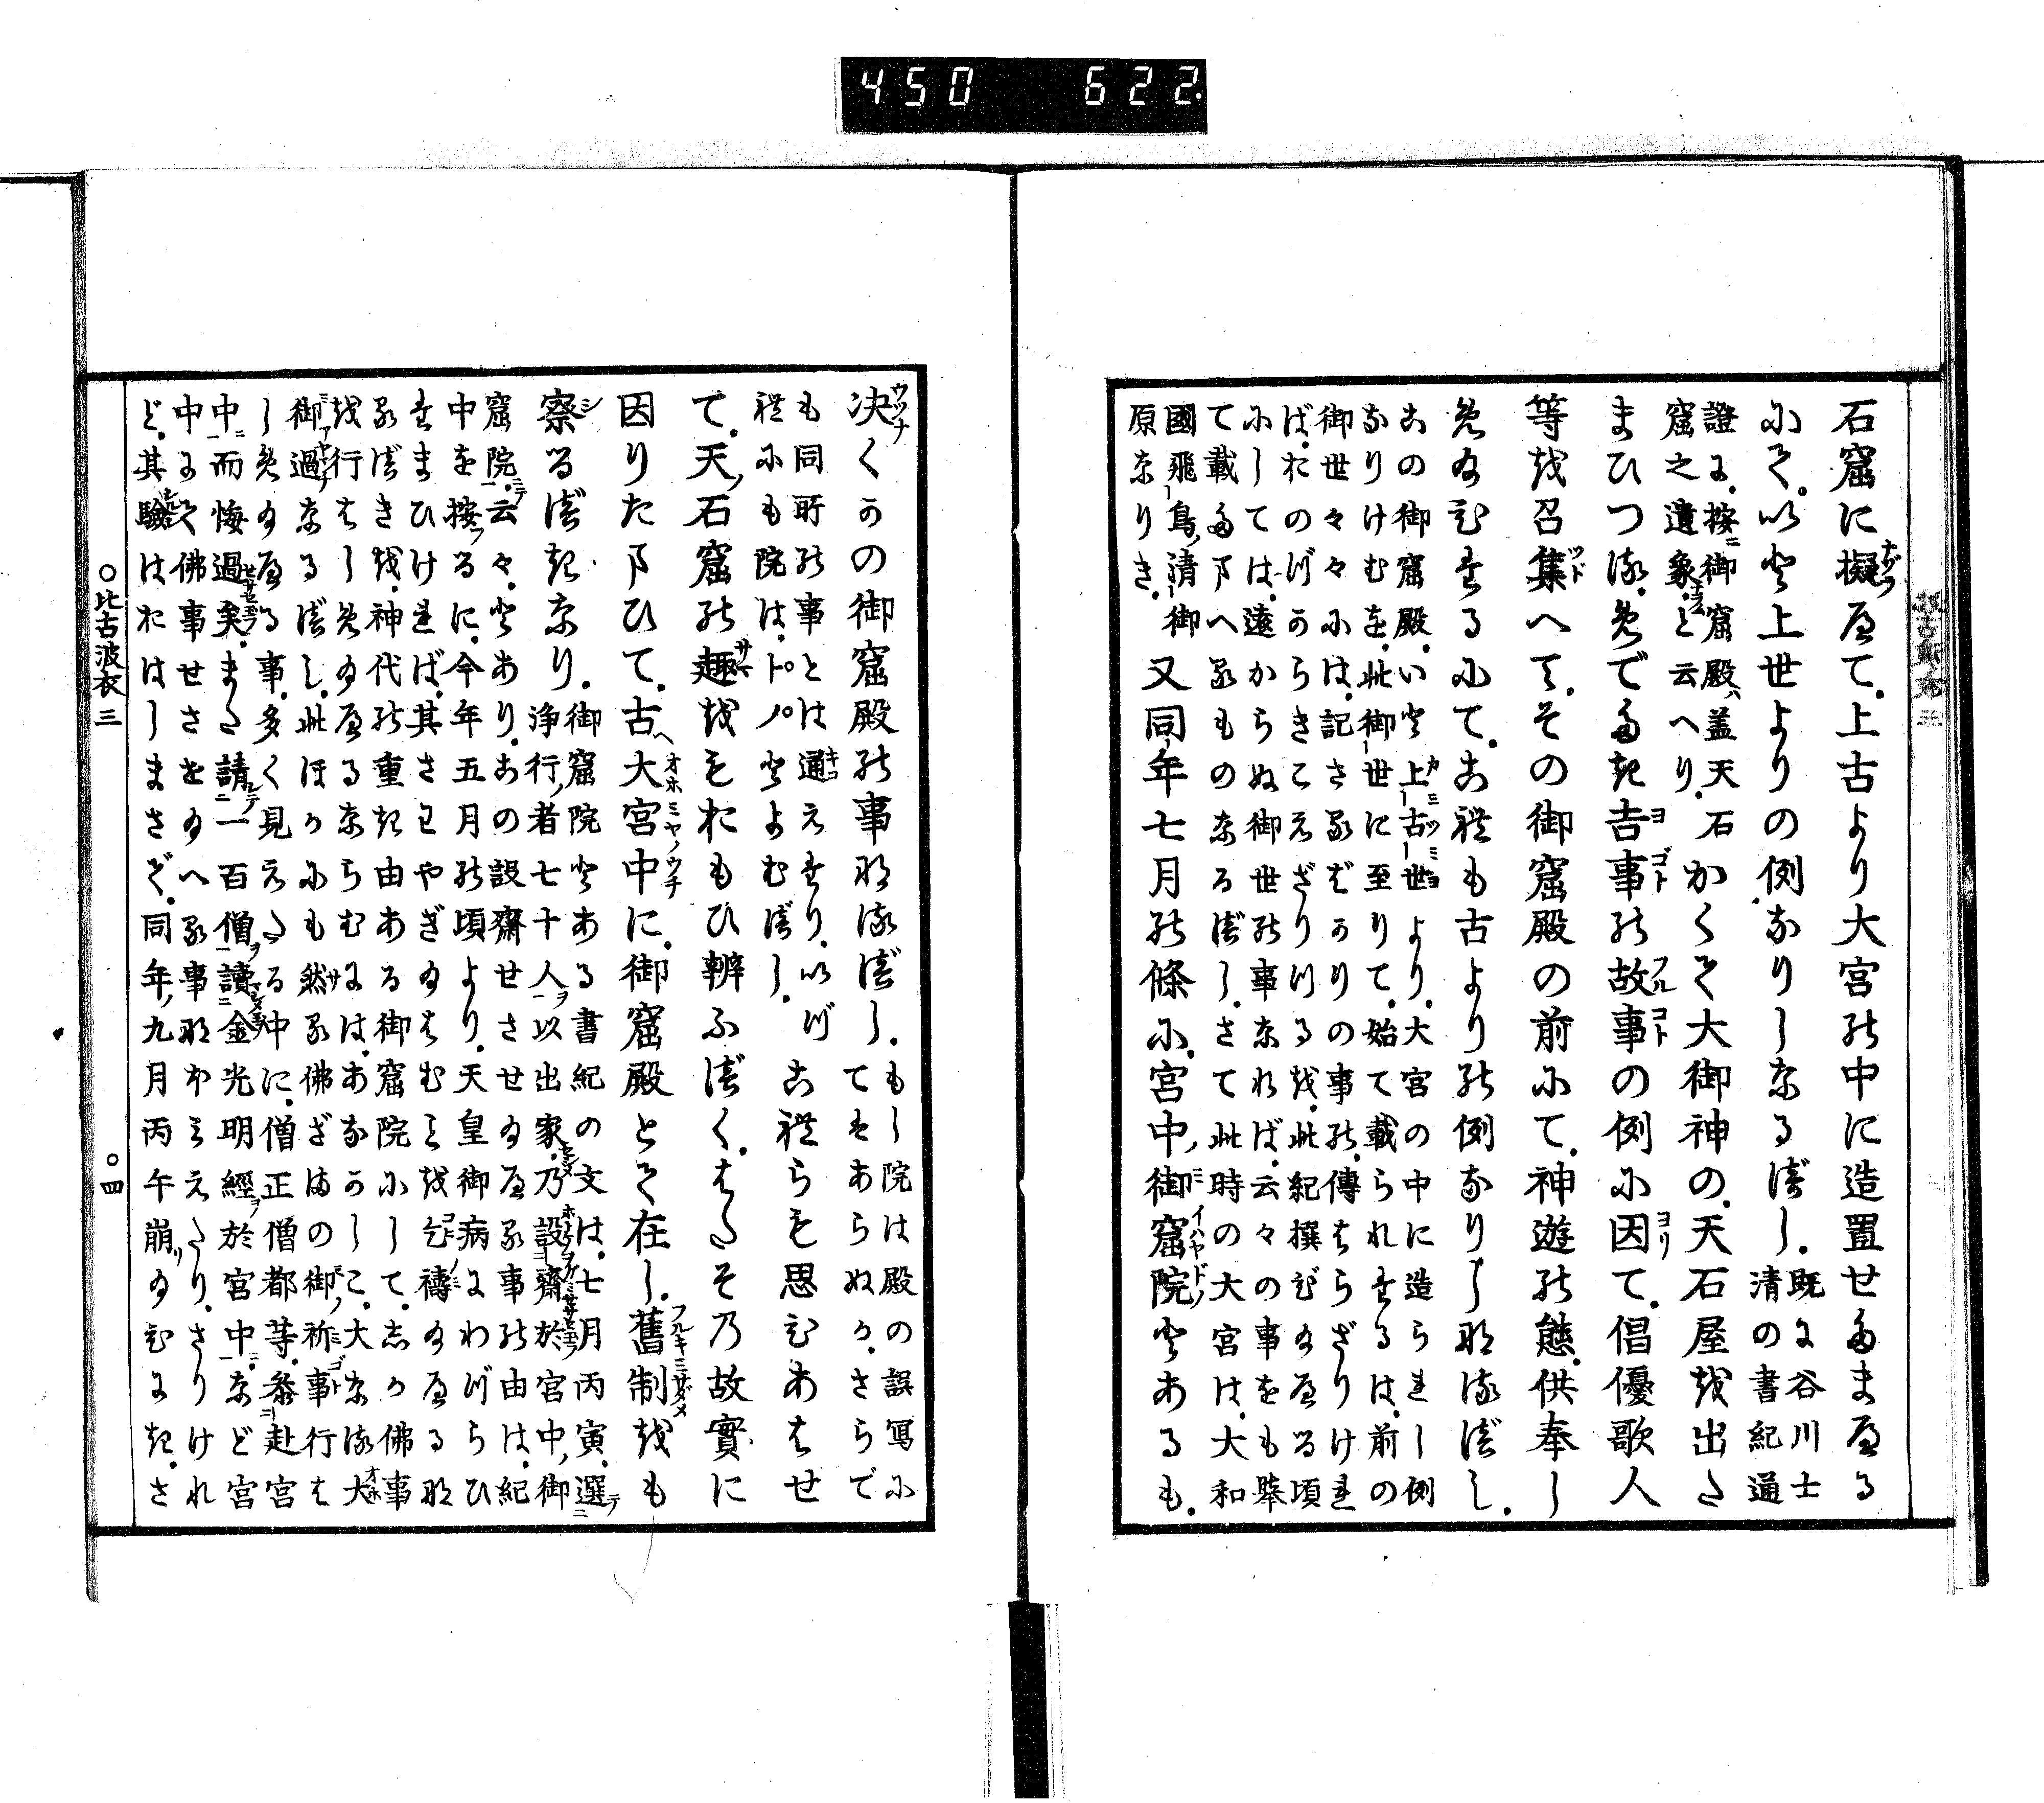 450 622
石窟に擬へて、上古より大宮の中に造置せたまへる
にて、いと上世よりの例なりしなるべし、既に谷川士
清の書紀通
證に、按御窟殿、蓋天石
窟之遺象と云へり、かくて大御神の、天石屋を出た
まひつる、めでたき吉事の故事の例に因て、倡優歌人
等を召集へて、その御窟殿の前にて、神遊の態供奉し
めたまひたるにて、これも古よりの例なりしなるべし、
この御窟殿、いと上古世より、大宮の中に造られし例
なりけむを、此御世に至りて、始て載られたるは、前の
御世々々には、記さるばかりの事の、傳はらざりけれ
ば、おのづからきこえざりつるを、此紀撰びたまへる頃
にしては、遠からぬ御世の事なれば、云々の事をも擧
て載たまへるものなるべし、さて此時の大宮は、大和
國飛鳥清御
原なりき、又同年七月の條に、宮中御窟院とあるも、
決くかの御窟殿の事なるべし、もし院は殿の誤寫に
てはあらぬか、さらで
も同所の事とは通えたり、いづ
れにも院は、トノとよむべし、これらを思ひあはせ
て、天石窟の趣をもおもひ辨ふべく、はたその故實に
因りたまひて、古大宮中に、御窟殿とて在し、舊制をも
察るべきなり、御窟院とある書紀の文は、七月丙寅、選
浄行者七十人以出家、乃設齋於宮中御
窟院、云々、とあり、この設齋せさせたまへる事の由は、紀
中を按るに、今年五月の頃より、天皇御病にわづらひ
たまひければ、其さわやぎたまはむことを乞禱たまへるな
るべきを、神代の重き由ある御窟院にして、しか佛事
を行はしめたまへるならむには、あなかしこ、大なる大
御過なるべし、此ほかにも然る佛ざまの御祈事行は
しめたまへる事、多く見えたる中に、僧正僧都等、參赴宮
中而悔過矣、また請一百僧讀金光明經於宮中、など宮
中にて佛事せさせたまへる事なほみえたり、さりけれ
ど、其驗はおはしまさず、同年九月丙午崩たまひにき、さ
○比古波衣三
○四